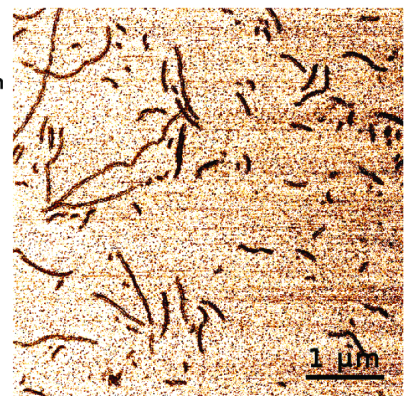 1 µm